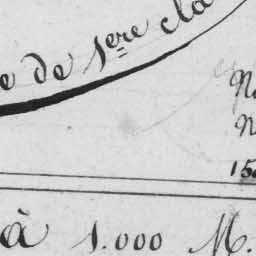 e de 1ère cla
N
N
15
à 1.000 M.